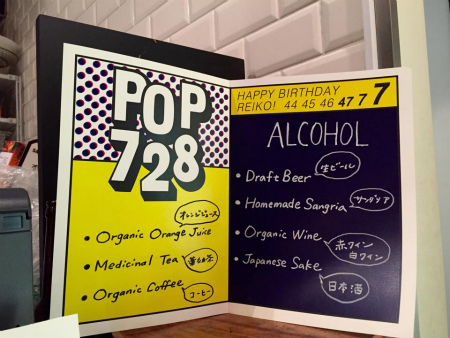 POP
728
オレンジジュース
• Organic Orange Juice
• Medicinal Tea
• Organic Coffee
コーヒー
HAPPY BIRTHDAY
REIKO! 44 45 46 47 7 7
ALCOHOL
• Draft Beer 生ビール
• Homemade Sangria サングリア
• Organic Wine 赤ワイン
白ワイン
• Japanese Sake
日本酒